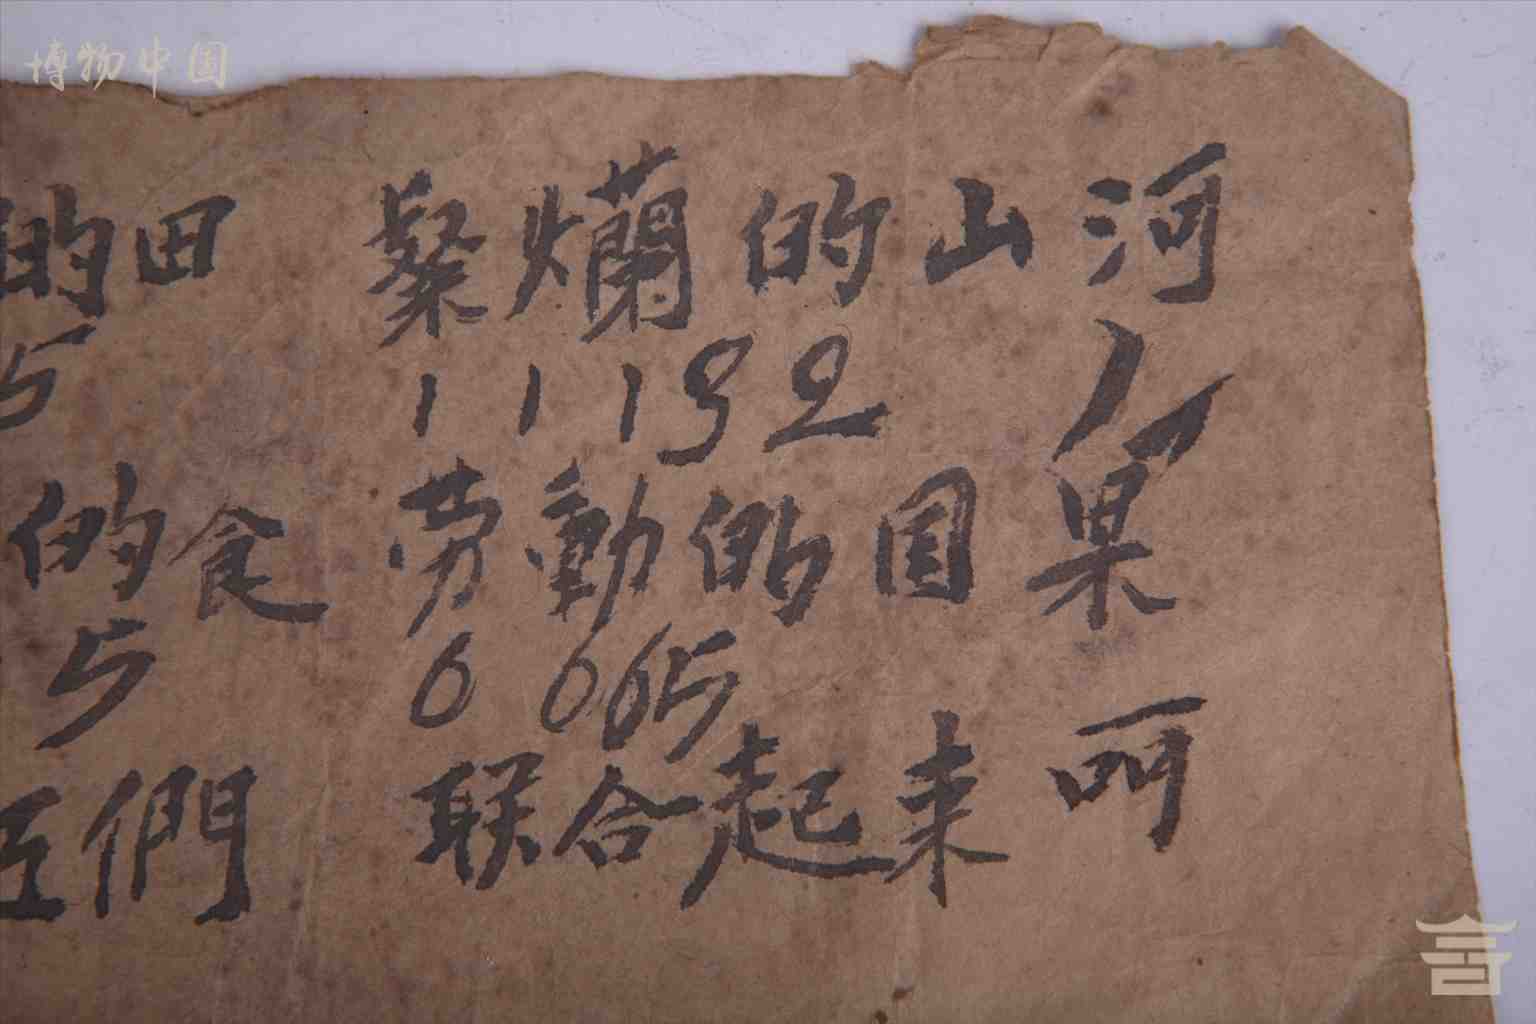 博物中国
的田 粲爛的山河
5 1 1 1 3 2
的食 劳動的国果
5 6 0 6 5
们 联合起来